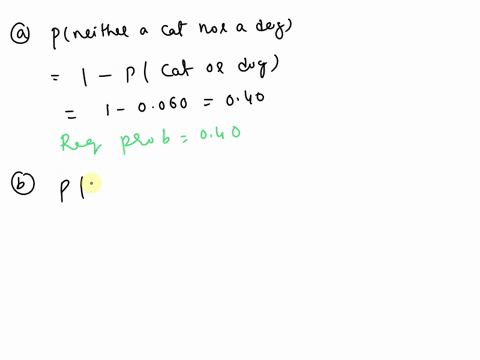 ⓐ P(neither a cat nor a dog)
= 1 - P( Cat or dog)
= 1 - 0.060 = 0.40
Req prob = 0.40
ⓑ P(